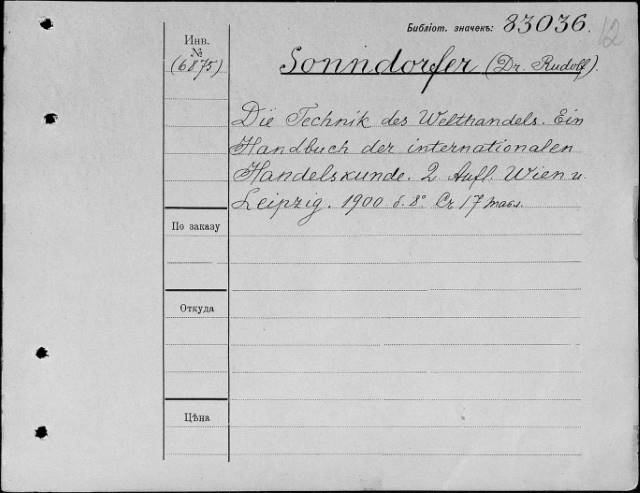 Библіот. значекъ: 83036. 12
Инв.
№
(6875)
Sonndorfer (Dr. Rudolf).
Die Technik des Welthandels. Ein
Handbuch der internationalen
Handelskunde. 2 Aufl. Wien u.
Leipzig. 1900 б. 8° Съ 17 табл.
По заказу
Откуда
Цѣна